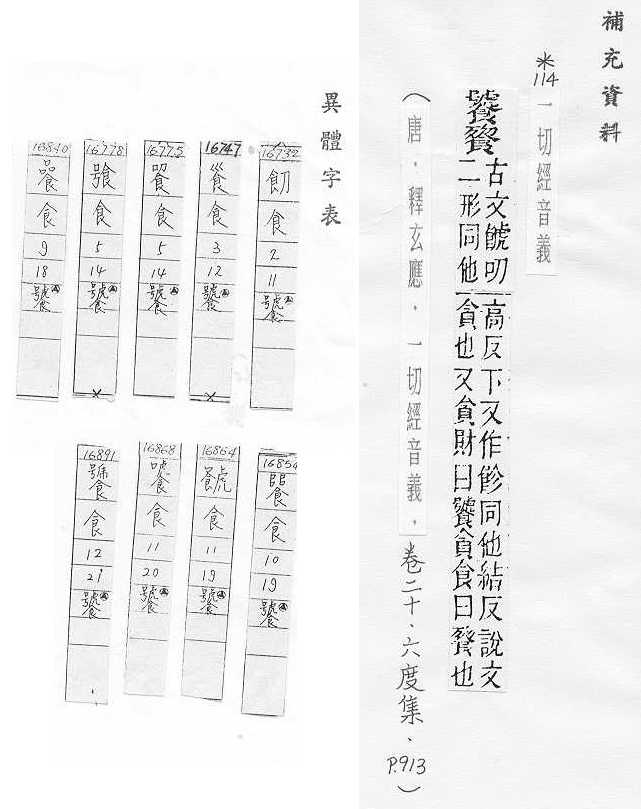 補充資料
*114 一切經音義
饕餮
古文叨
二形同他
高反下又作飻同他結反說文
貪也又貪財曰饕貪食曰餮也
(唐．釋玄應．一切經音義．卷二十．六度集．P.913)
異體字表
16732
食
2
11
饕
16747
食
3
12
饕
16775
食
5
14
饕
16778
食
5
14
饕
16840
食
9
18
饕
16854
食
10
19
饕
16864
食
11
19
饕
16868
食
11
20
饕
16891
食
12
21
饕